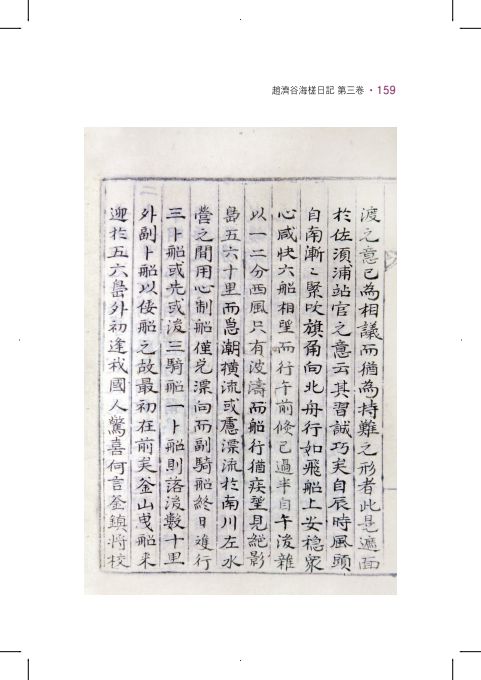 趙濟谷海槎日記 第三卷 · 159
渡之意已為相議而猶為持難之形者此是遮面
於佐須浦站官之意云其習誠巧矣自辰時風頭
自南漸〻緊吹旗角向北舟行如飛船上安穩衆
心咸快六船相望而行午前倏已過半自午後雖
以一二分西風只有波濤而船行猶疾望見絶影
島五六十里而忽潮橫流或慮漂流於南川左水
營之間用心制船僅免漂向而副騎船終日雙行
三卜船或先或後三騎船一卜船則落後數十里
外副卜船以倭船之故最初在前矣釜山曳船来
迎於五六島外初逢我國人驚喜何言釜鎮將校